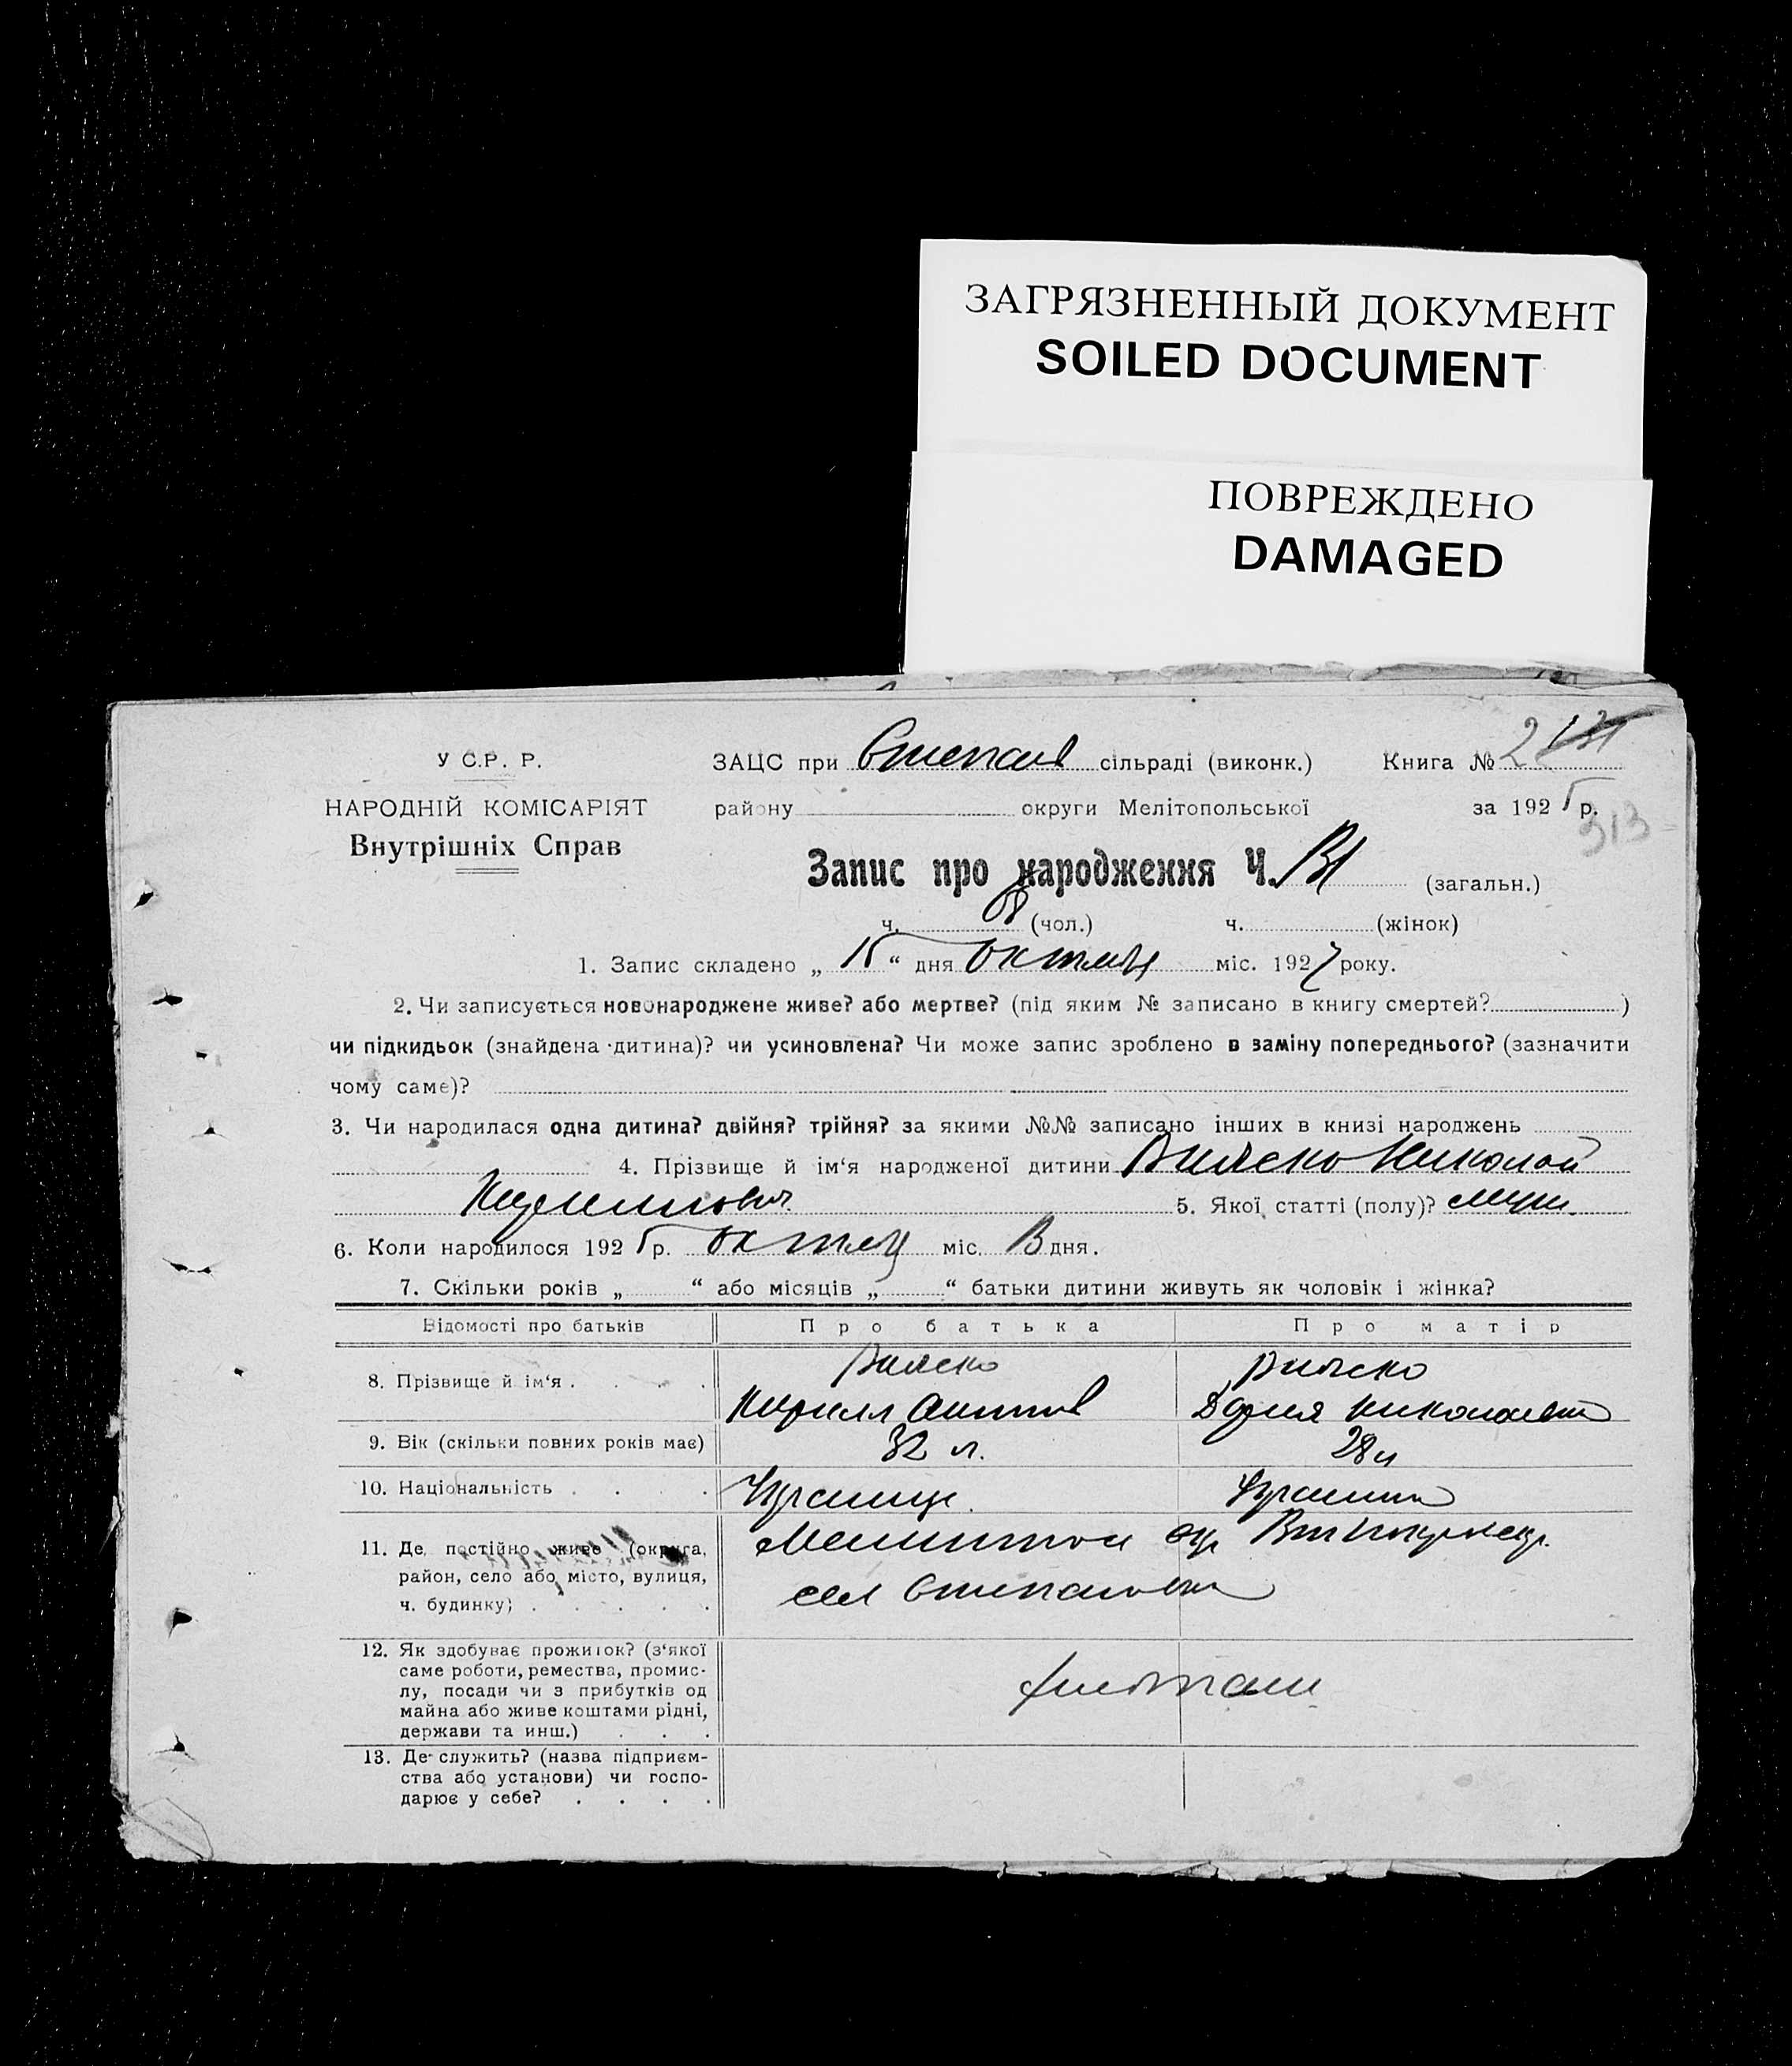 ЗАГРЯЗНЕННЫЙ ДОКУМЕНТ
SOILED DOCUMENT
ПОВРЕЖДЕНО
DAMAGED
У С.Р. Р.
НАРОДНІЙ КОМІСАРІЯТ
Внутрішніх Справ
ЗАЦС при Степан сільраді (виконк.) Книга № 2
району округи Мелітопольської за 1925 р.
313
Запис про народження Ч. 131 (загальн.)
ч. 68 (чол.) ч. (жінок)
1. Запис складено „ 15 “ дня міс. 192 року.
2. Чи записується новонароджене живе? або мертве? (під яким № записано в книгу смертей? )
чи підкидьок (знайдена дитина)? чи усиновлена? Чи може запис зроблено в заміну попереднього? (зазначити
чому саме)?
3. Чи народилася одна дитина? двійня? трійня? за якими №№ записано інших в книзі народжень
4. Прізвище й ім‘я народженої дитини Николай
Кириллович 5. Якої статті (полу)? муж.
6. Коли народилося 1925 р. міс. 13 дня.
7. Скільки років „ “ або місяців „ “ батьки дитини живуть як чоловік і жінка?
Відомості про батьків Про батька Про матір
8. Прізвище й ім‘я .
Кирилл Дария Николаевна
9. Вік (скільки повних років має) 32 л. 28 л
10. Національність
11. Де постійно живе (округа, Мелитопол окр
район, село або місто, вулиця, сел Степановка
ч. будинку)
12. Як здобуває прожиток? (з‘якої
саме роботи, ремества, промис-
лу, посади чи з прибутків од хлебопаш
майна або живе коштами рідні,
держави та инш.)
13. Де служить? (назва підприєм-
ства або установи) чи госпо-
дарює у себе?